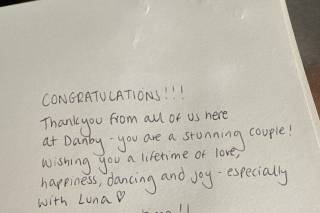 CONGRATULATIONS!!!
Thankyou from all of us here
at Danby - you are a stunning couple!
Wishing you a lifetime of love,
happiness, dancing and joy - especially
with Luna ♡